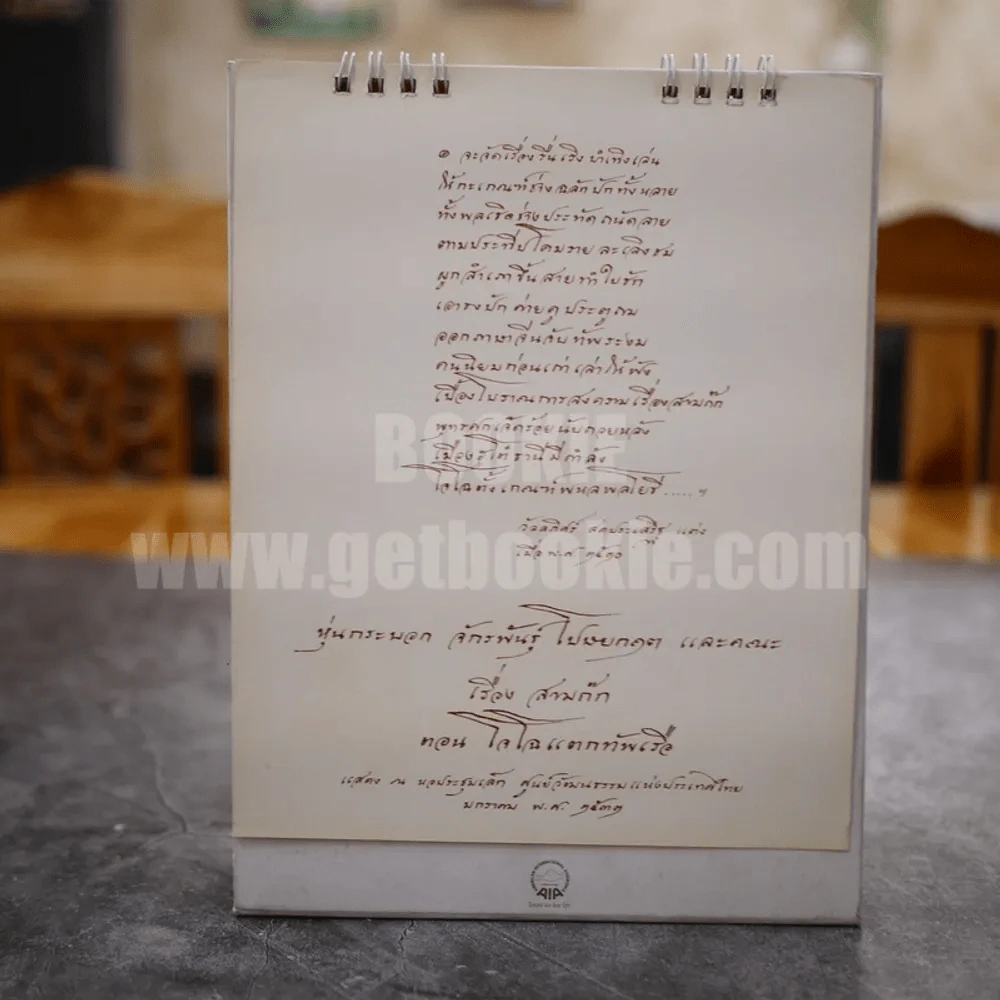 ๏ จะจัดเรื่องรื่นเริงบำเทิงเล่น
ให้กะเกณฑ์ช่างฉลักปักทั้งหลาย
ทั้งพลเชิดช่างประทัดถนัดลาย
ตามประทีปโคมรายละเลิงชม
ผูกสำเภาขึ้นสายทำใบรัก
เอาธงปักค่ายคูประตูถม
ออกภาษาจีนจับทัพระงม
คนนิยมก่อนเก่าเล่าให้ฟัง
เบื้องโบราณการสงครามเรื่องสามก๊ก
พุทธศกเจ็ดร้อยนับถอยหลัง
เมืองธานีมีกำลัง
โจโฉตั้งเกณฑ์พหลพลโยธี ..... ฯ
วัลลภิศร์ สดประเสริฐ แต่ง
เมื่อ พ.ศ.
BOOKIE
www.getbookie.com
หุ่นกระบอก จักรพันธุ์ โปษยกฤต และคณะ
เรื่อง สามก๊ก
ตอน โจโฉแตกทัพเรือ
แสดง ณ หอประชุมเล็ก ศูนย์วัฒนธรรมแห่งประเทศไทย
มกราคม พ.ศ. ๒๕๓๓
AIA